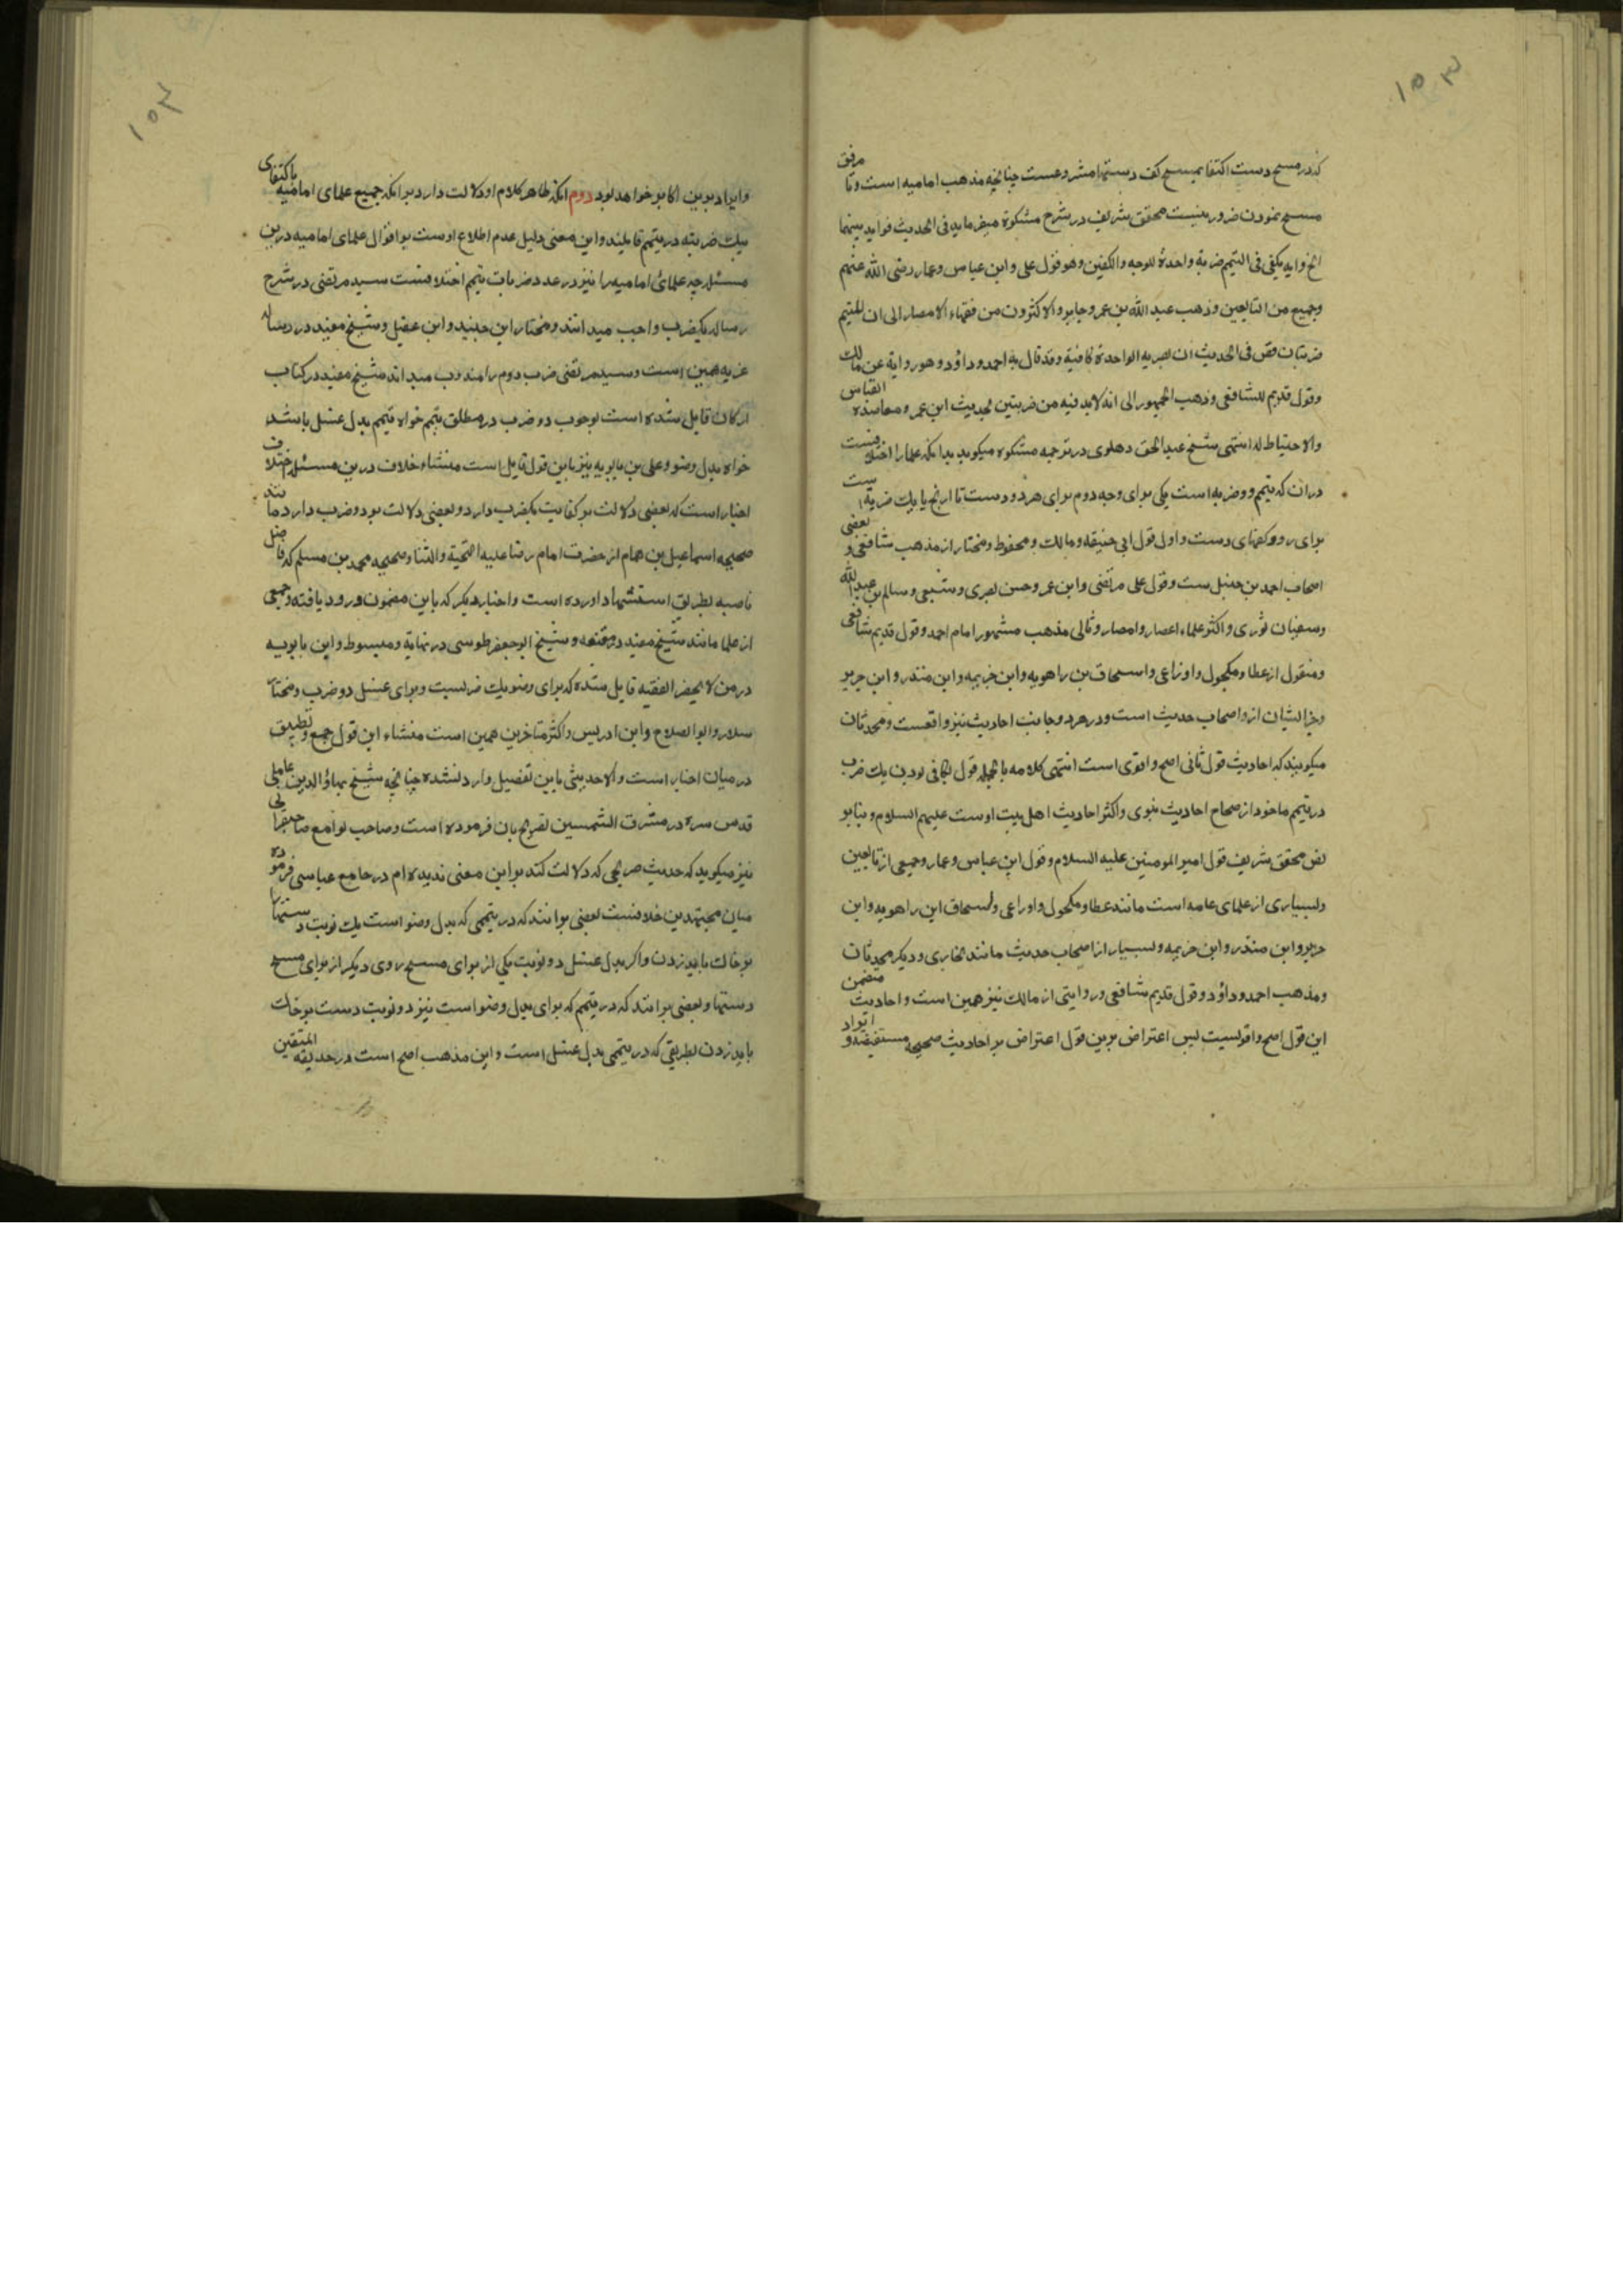 ۱۵۳
که در مسح دست اکتفا بمسح کف دستها مشروعست چنانچه مذهب امامیه است و تا مرفق
مسح نمودن ضرور نیست محقق شریف در شرح مشکوة میفرماید فی الحدیث فواید بینها
الخ وانه یکفی فی التیمم ضربة واحدة للوجه والکفین وهو قول علی وابن عباس وعمار رضی الله عنهم
وجمیع من التابعین وذهب عبد الله بن عمر وجابر والاکثرون من فقهاء الامصار الی ان المتیمم
ضربتان فقی فی الحدیث ان لضربه الواحدة کافیة وقد قال به احمد وداؤد وهو روایة عن مالک
وقول قدیم للشافعی وذهب الجمهور الی انه لابد فیه من ضربتین لحدیث ابن عمر ومعاضدة القیاس
والاحتیاط له انتهی شیخ عبد الحق دهلوی در ترجمه مشکوه میکوید بدانکه علما را اختلافیست
دران که تیمم دو ضربه است یکی برای وجه دوم برای هر دو دست تا ارنج یا یک ضربه است
برای رو و کفهای دست و اول قول ابی حنیفه و مالک و محفوظ و مختار از مذهب شافعی و بعضی
اصحاب احمد بن حنبل ست وقول علی مرتضی وابن عمر وحسن بصری وشعبی وسالم بن عبد الله
وسفیان ثوری و اکثر علماء اعصار و امصار و ثانی مذهب مشهور امام احمد وقول قدیم شافعی
ومنقول از عطا ومکحول واوزاعی واسحاق بن راهویه وابن خزیمه وابن منذر وابن جریر
وغیر ایشان از اصحاب حدیث است ودر هر دو جانب احادیث نیز واقعست ومحدثان
میکویند که احادیث قول ثانی اصح واقوی است انتهی کلامه بالجمله قول بکافی بودن یک ضرب
در تیمم ماخوذ از صحاح احادیث نبوی واکثر احادیث اهل بیت اوست علیهم السلام وبنابر
نص محقق شریف قول امیر المومنین علیه السلام وقول ابن عباس وعمار وجمیعی از تابعین
وبسیاری از علمای عامه است مانند عطا ومکحول واوزاعی واسحاق ابن راهویه وابن
جریر وابن منذر وابن خزیمه وبسیار از اصحاب حدیث مانند بخاری ودیکر محدثان
ومذهب احمد وداؤد وقول قدیم شافعی وروایتی از مالک نیز همین است واحادیث متضمن
این قول اصح واقویست پس اعتراض برین قول اعتراض بر احادیث صحیحه مستفیضه و ایراد
۱۵۴
وایراد برین اکابر خواهد بود دوم انکه ظاهر کلام او دلالت دارد برانکه جمیع علمای امامیه باکتفای
بیک ضربه در تیمم قایلند واین معنی دلیل عدم اطلاع اوست بر اقوال علمای امامیه درین
مسئله چه علمای امامیه را نیز در عدد ضربات تیمم اختلافست سید مرتضی در شرح
رساله یکضرب واجب میدانند ومختار ابن جنید وابن عقیل وشیخ مفید در رساله
عزیه همین است وسید مرتضی ضرب دوم را مندوب میداند شیخ مفید در کتاب
ارکان قایل شده است بوجوب دو ضرب در مطلق تیمم خواه تیمم بدل غسل باشد
خواه بدل وضو وعلی بن بابویه نیز باین قول قایل است منشاء خلاف درین مسئله اختلاف
اخبار است که بعضی دلالت بر کفایت یکضرب دارد وبعضی دلالت بر دو ضرب دارد مانند
صحیحه اسماعیل بن همام از حضرت امام رضا علیه التحیة والثنا وصحیحه محمد بن مسلم که فاضل
ناصبه بطریق استشهاد اورده است واخبار دیکر که باین مضمون ورود یافته وجمعی
از علما مانند شیخ مفید در مقنعه وشیخ ابوجعفر طوسی در نهایة ومبسوط وابن بابویه
در من لا یحضر الفقیه قایل شده که برای وضو یک ضربست وبرای غسل دو ضرب ومختار
سلار وابوالصلاح وابن ادریس واکثر متاخرین همین است منشاء این قول جمع وتطبیق
در میان اخبار است والا حدیثی باین تفصیل وارد نشده چنانچه شیخ بهاؤ الدین عاملی
قدس سره در مشرق الشمسین تصریح بان فرموده است وصاحب لوامع صاحبقرانی
نیز میکوید که حدیث صریحی که دلالت کند بر این معنی ندیده ام در جامع عباسی فرموده
میان مجتهدین خلافست بعضی برانند که در تیممی که بدل وضو است یک نوبت دستها را
بر خاک باید زدن واکر بدل غسل دو نوبت یکی از برای مسح روی دیکر از برای مسح
دستها وبعضی برانند که در تیمم که برای بدل وضو است نیز دو نوبت دست بر خاک
باید زدن بطریقی که در تیممی بدل غسل است واین مذهب اصح است در حدیقه المتقین